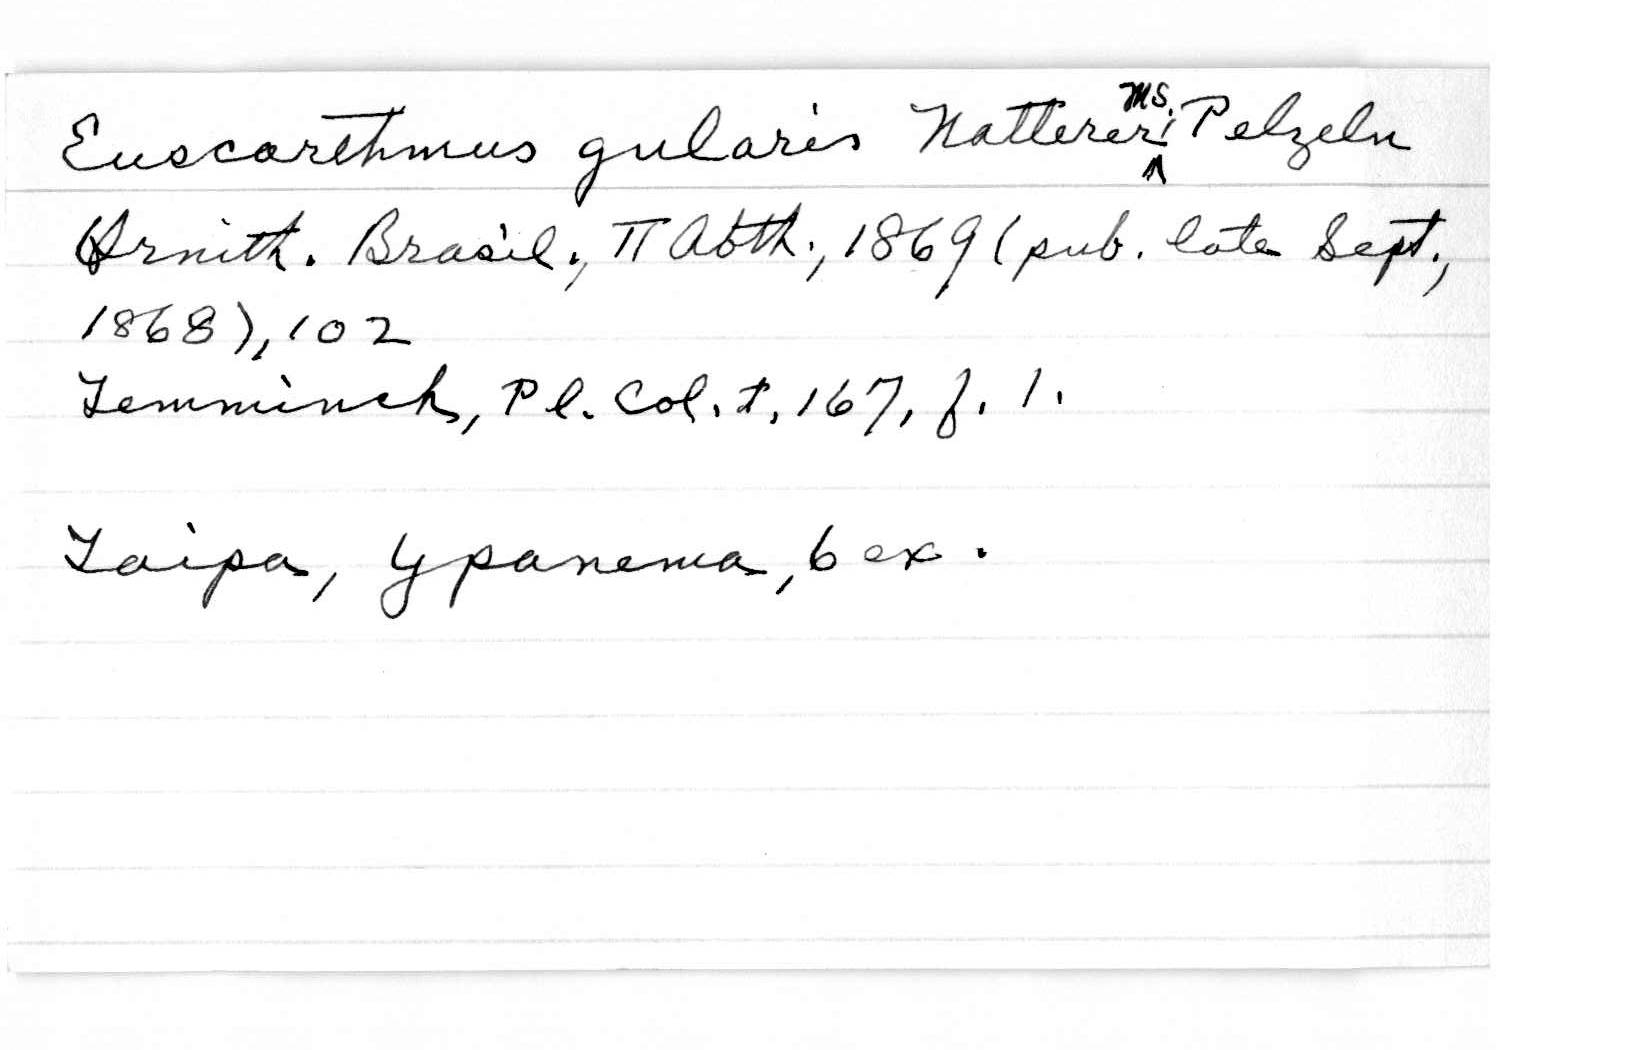 Euscarthmus gularis Natterer MS.; Pelzeln
Ornith. Brasil., II Abth., 1869 (pub. late Sept.,
1868), 102
Temminck, Pl. Col. t. 167, f. 1.
Taipa, Ypanema, 6 ex.